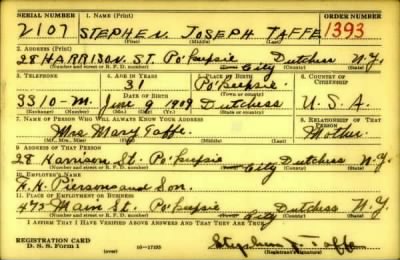 SERIAL NUMBER 1. NAME (Print) ORDER NUMBER
2107 STEPHEN JOSEPH TAFFE 1393
(First) (Middle) (Last)
2. ADDRESS (Print)
28 HARRISON ST. Po'Keepsie City Dutchess N.Y.
(Number and street or R. F. D. number) (Town) (County) (State)
3. TELEPHONE 4. AGE IN YEARS 5. PLACE OF BIRTH 6. COUNTRY OF CITIZENSHIP
31 Po'Keepsie
DATE OF BIRTH (Town or county)
3310-M. June 9 1909 Dutchess U.S.A.
(Exchange) (Number) (Mo.) (Day) (Yr.) (State or country)
7. NAME OF PERSON WHO WILL ALWAYS KNOW YOUR ADDRESS 8. RELATIONSHIP OF THAT PERSON
Mrs Mary Taffe. Mother.
(Mr., Mrs., Miss) (First) (Middle) (Last)
9. ADDRESS OF THAT PERSON
28 Harrison St. Po'Keepsie City Dutchess N.Y.
(Number and street or R. F. D. number) (Town) (County) (State)
10. EMPLOYER'S NAME
Pierson and Son.
11. PLACE OF EMPLOYMENT OR BUSINESS
475 Main St. Po'Keepsie City Dutchess N.Y.
(Number and street or R. F. D. number) (Town) (County) (State)
I AFFIRM THAT I HAVE VERIFIED ABOVE ANSWERS AND THAT THEY ARE TRUE.
REGISTRATION CARD
D. S. S. Form 1 (over) 16-17105 Stephen J. Taffe
(Registrant's signature)